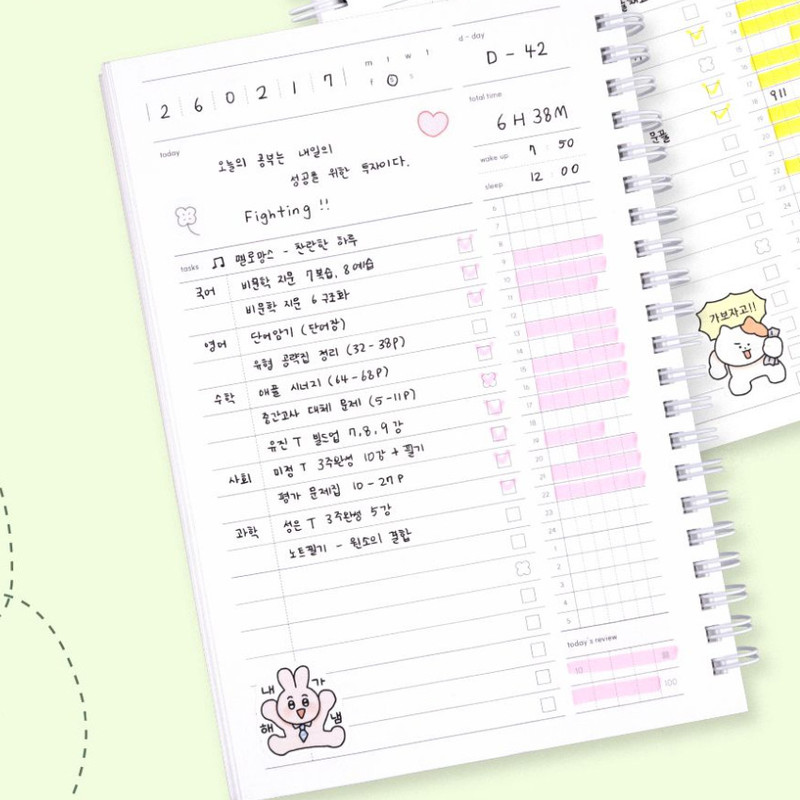 260217
m t w t
f s s
d-day
D - 42
total time
6 H 38 M
wake up 7 : 50
sleep 12 : 00
today
오늘의 공부는 내일의
성공을 위한 투자이다.
Fighting !!
tasks ♫ 멜로망스 - 찬란한 하루
국어 비문학 지문 7 복습, 8 예습
비문학 지문 6 구조화
영어 단어암기 (단어장)
유형 공략집 정리 (32-38p)
수학 애플 시너지 (64-68p)
중간고사 대체 문제 (5-11p)
유진 T 빌드업 7, 8, 9 강
사회 미정 T 3주완성 10강 + 필기
평가 문제집 10-27p
과학 성은 T 3주완성 5강
노트필기 - 원소의 결합
6
7
8
9
10
11
12
13
14
15
16
17
18
19
20
21
22
23
24
1
2
3
4
5
today's review
10
100
내가
해냄
13
14
15
16
17
18 911
19
20
21
22
23
24
가보자고!!